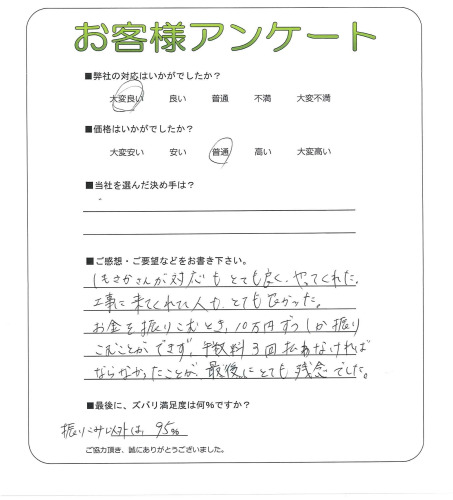 お客様アンケート
■弊社の対応はいかがでしたか？
大変良い 良い 普通 不満 大変不満
■価格はいかがでしたか？
大変安い 安い 普通 高い 大変高い
■当社を選んだ決め手は？
■ご感想・ご要望などをお書き下さい。
しもさかさんが対応もとても良く、やってくれた。
工事に来てくれた人も、とても良かった。
お金を振りこむとき、10万円ずつしか振り
こむことができず、手数料3回払わなければ
ならなかったことが、最後にとても残念でした。
■最後に、ズバリ満足度は何%ですか？
振りこみ以外は、95%
ご協力頂き、誠にありがとうございました。